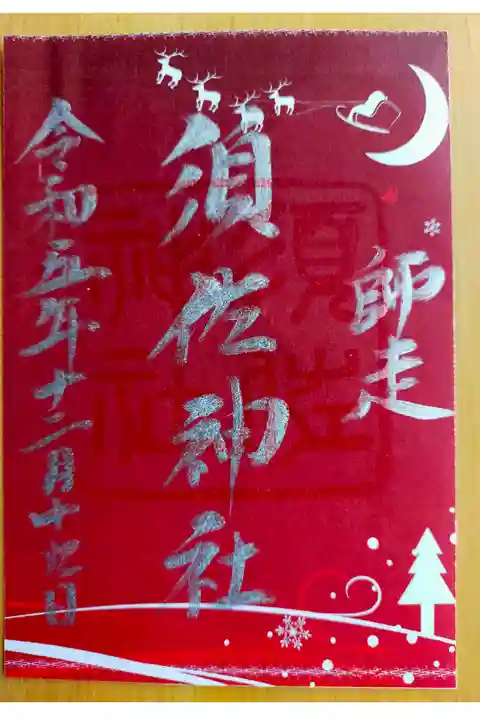 師走
須佐神社
令和五年十二月十七日